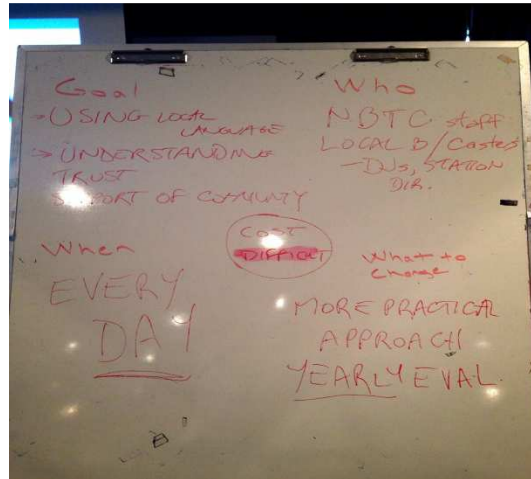 Goal
→ USING LOCAL
LANGUAGE
→ UNDERSTANDING
TRUST
SUPPORT OF COMMUNITY
Who
NBTC staff
LOCAL B/Casters
- DJs, STATION
DIR.
COST
DIFFICULT
When
EVERY
DAY
What to
change
MORE PRACTICAL
APPROACH
YEARLY EVAL.